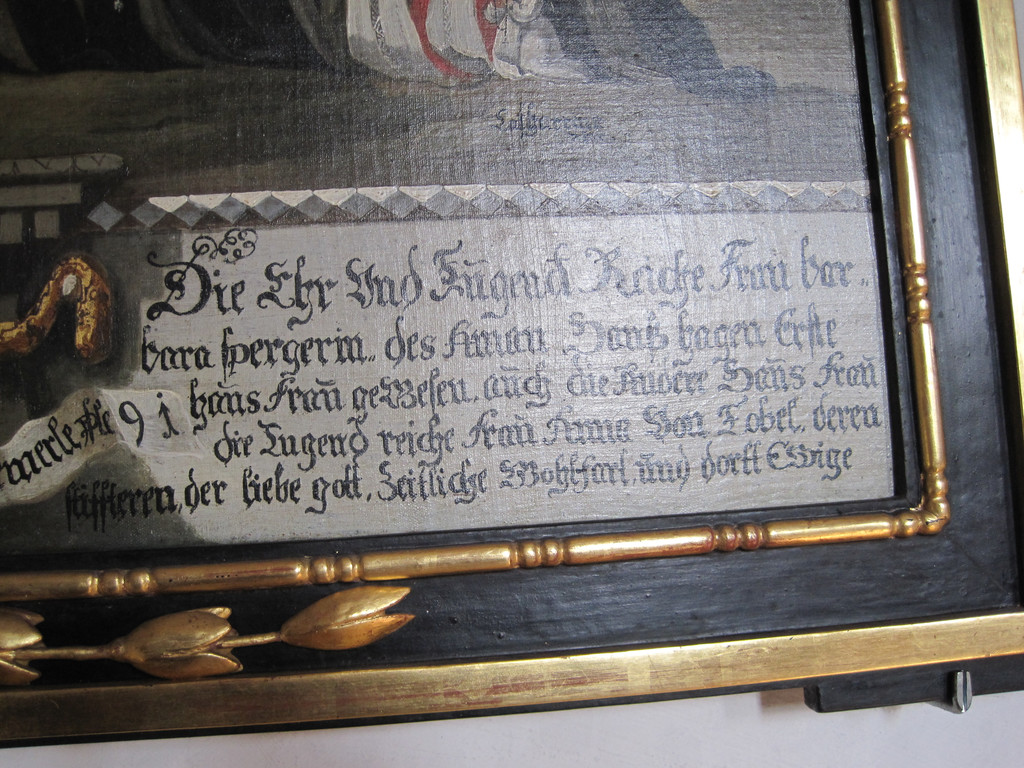 Die Ehr Und Tugend Reiche Frau bar-
bara spergerin, des Aman Hans hagen Erste
haus Frau geWesen, auch die Andere Haus Frau
91
die Tugend reiche Frau Anna Von Tobel, deren
stiffteren, der liebe gott, Zeitliche Wohlfart, und dortt EWige